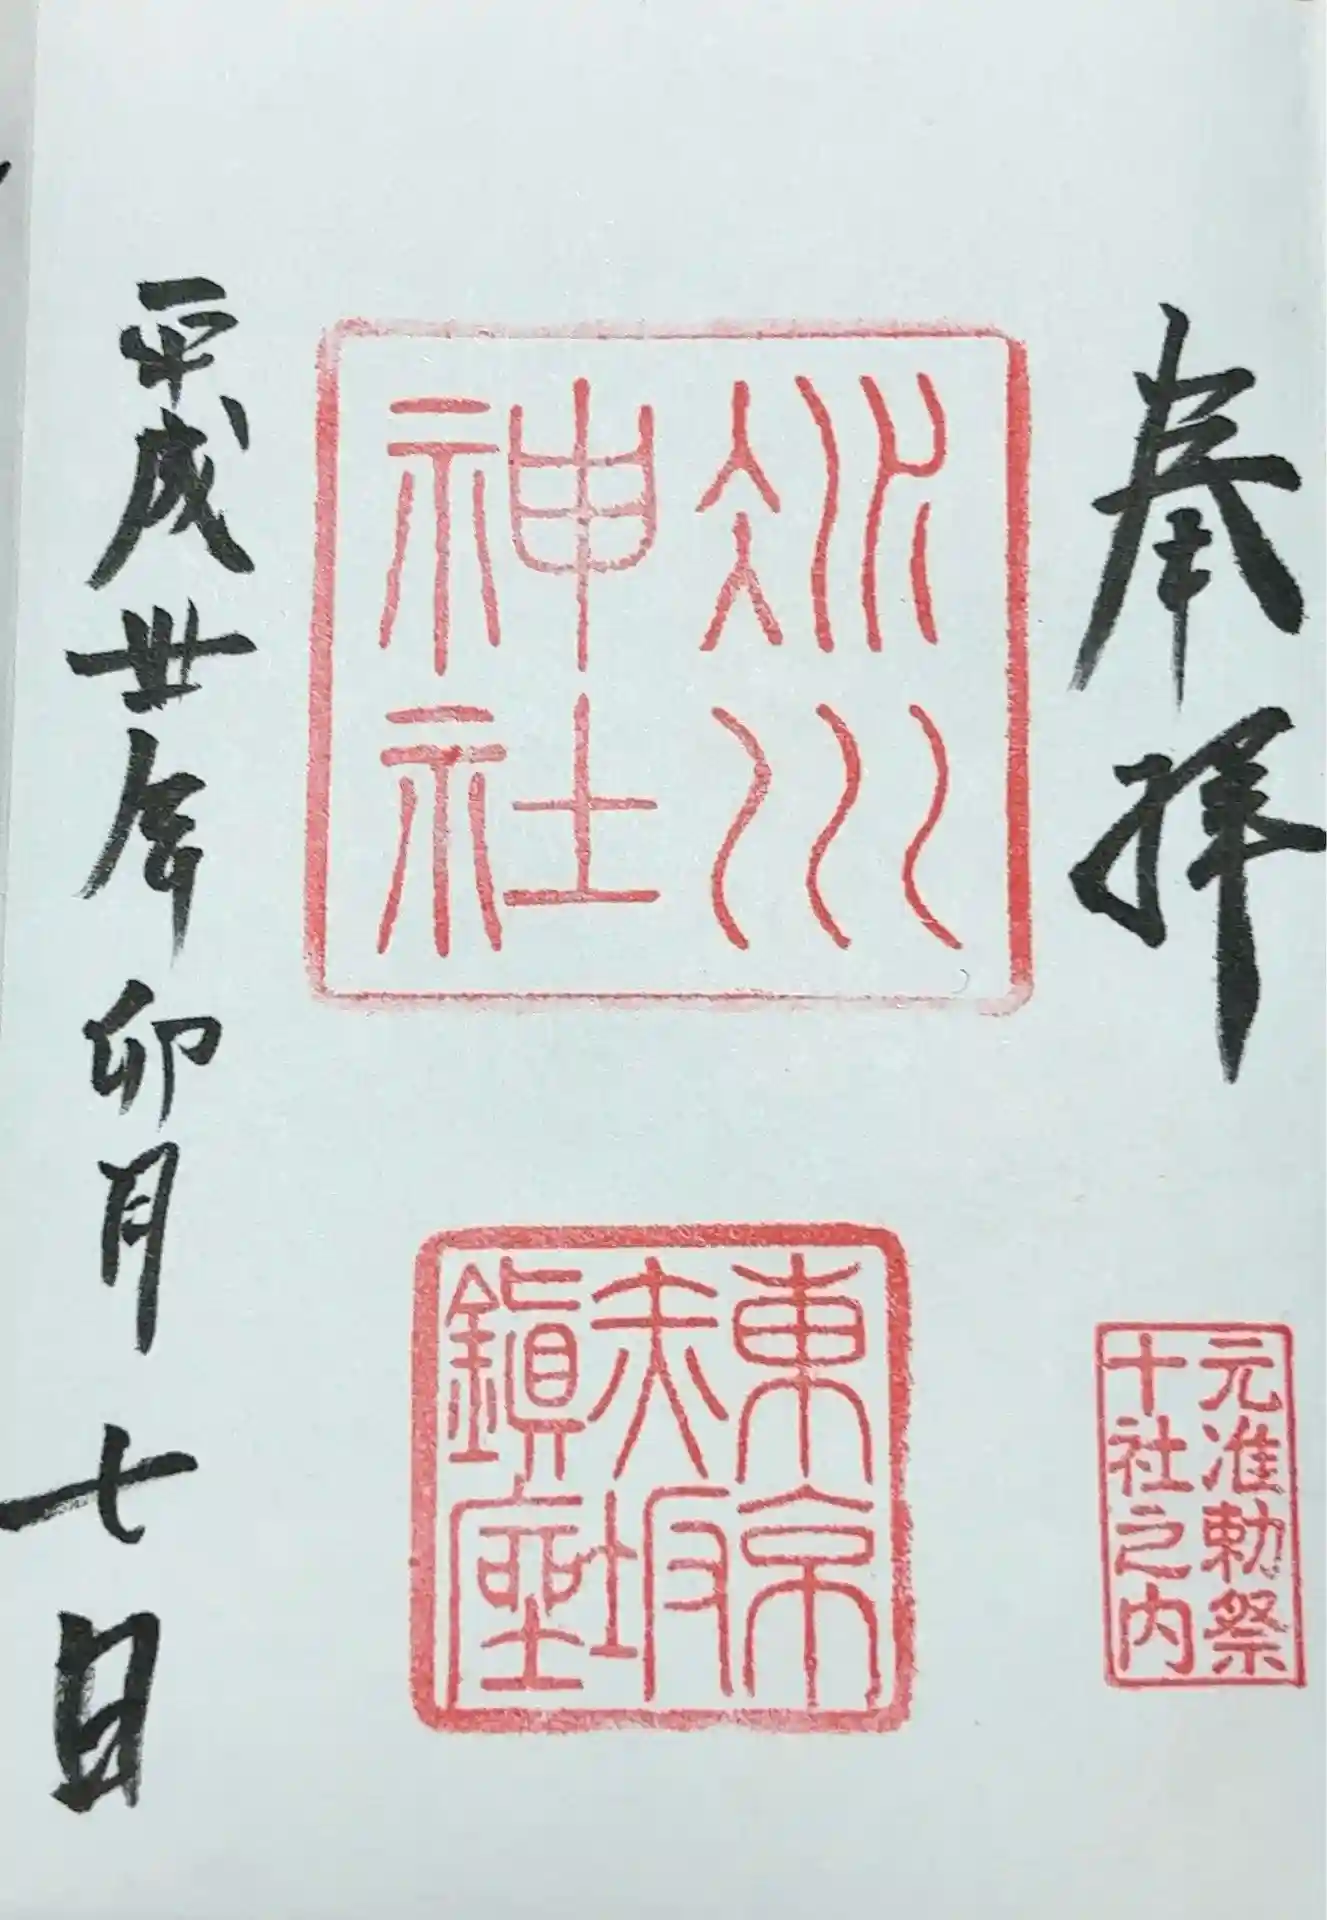 奉拝
元准勅祭
十社之内
氷川
神社
東京
赤坂
鎮座
平成卅年卯月七日